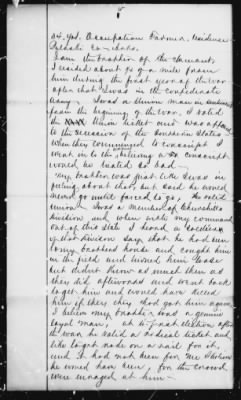 5
24 yrs. Occupation Farmer, residence
I am the brother of the claimant,
I resided about ¾ of a mile from
him during the first year of the war
after that I was in the confederate
army. I was a Union man in
from the beginning of the war. I voted
the Union ticket and was opposed
to the secession of the Southern States
when they commenced to conscript I
went in to the as conscripts
would be treated so bad.
My brother was just like I was in
putting about that, but said he would
never go until forced to go. He voted
Union. I was a member of
Division and when with my command
out of this state I heard a
of that Division say, that he had run
my brother's horse and caught him
in the field and turned him loose
but didn't know as much then as
they did afterwards and went back
to get him and would have killed
him if they had got him again
I believe my brother was a genuine
loyal man, at the first election after
the war he voted a radical ticket and
like to got rode on a rail for it,
and it had not been for me I believe
he would have been, for the crowd
were enraged at him